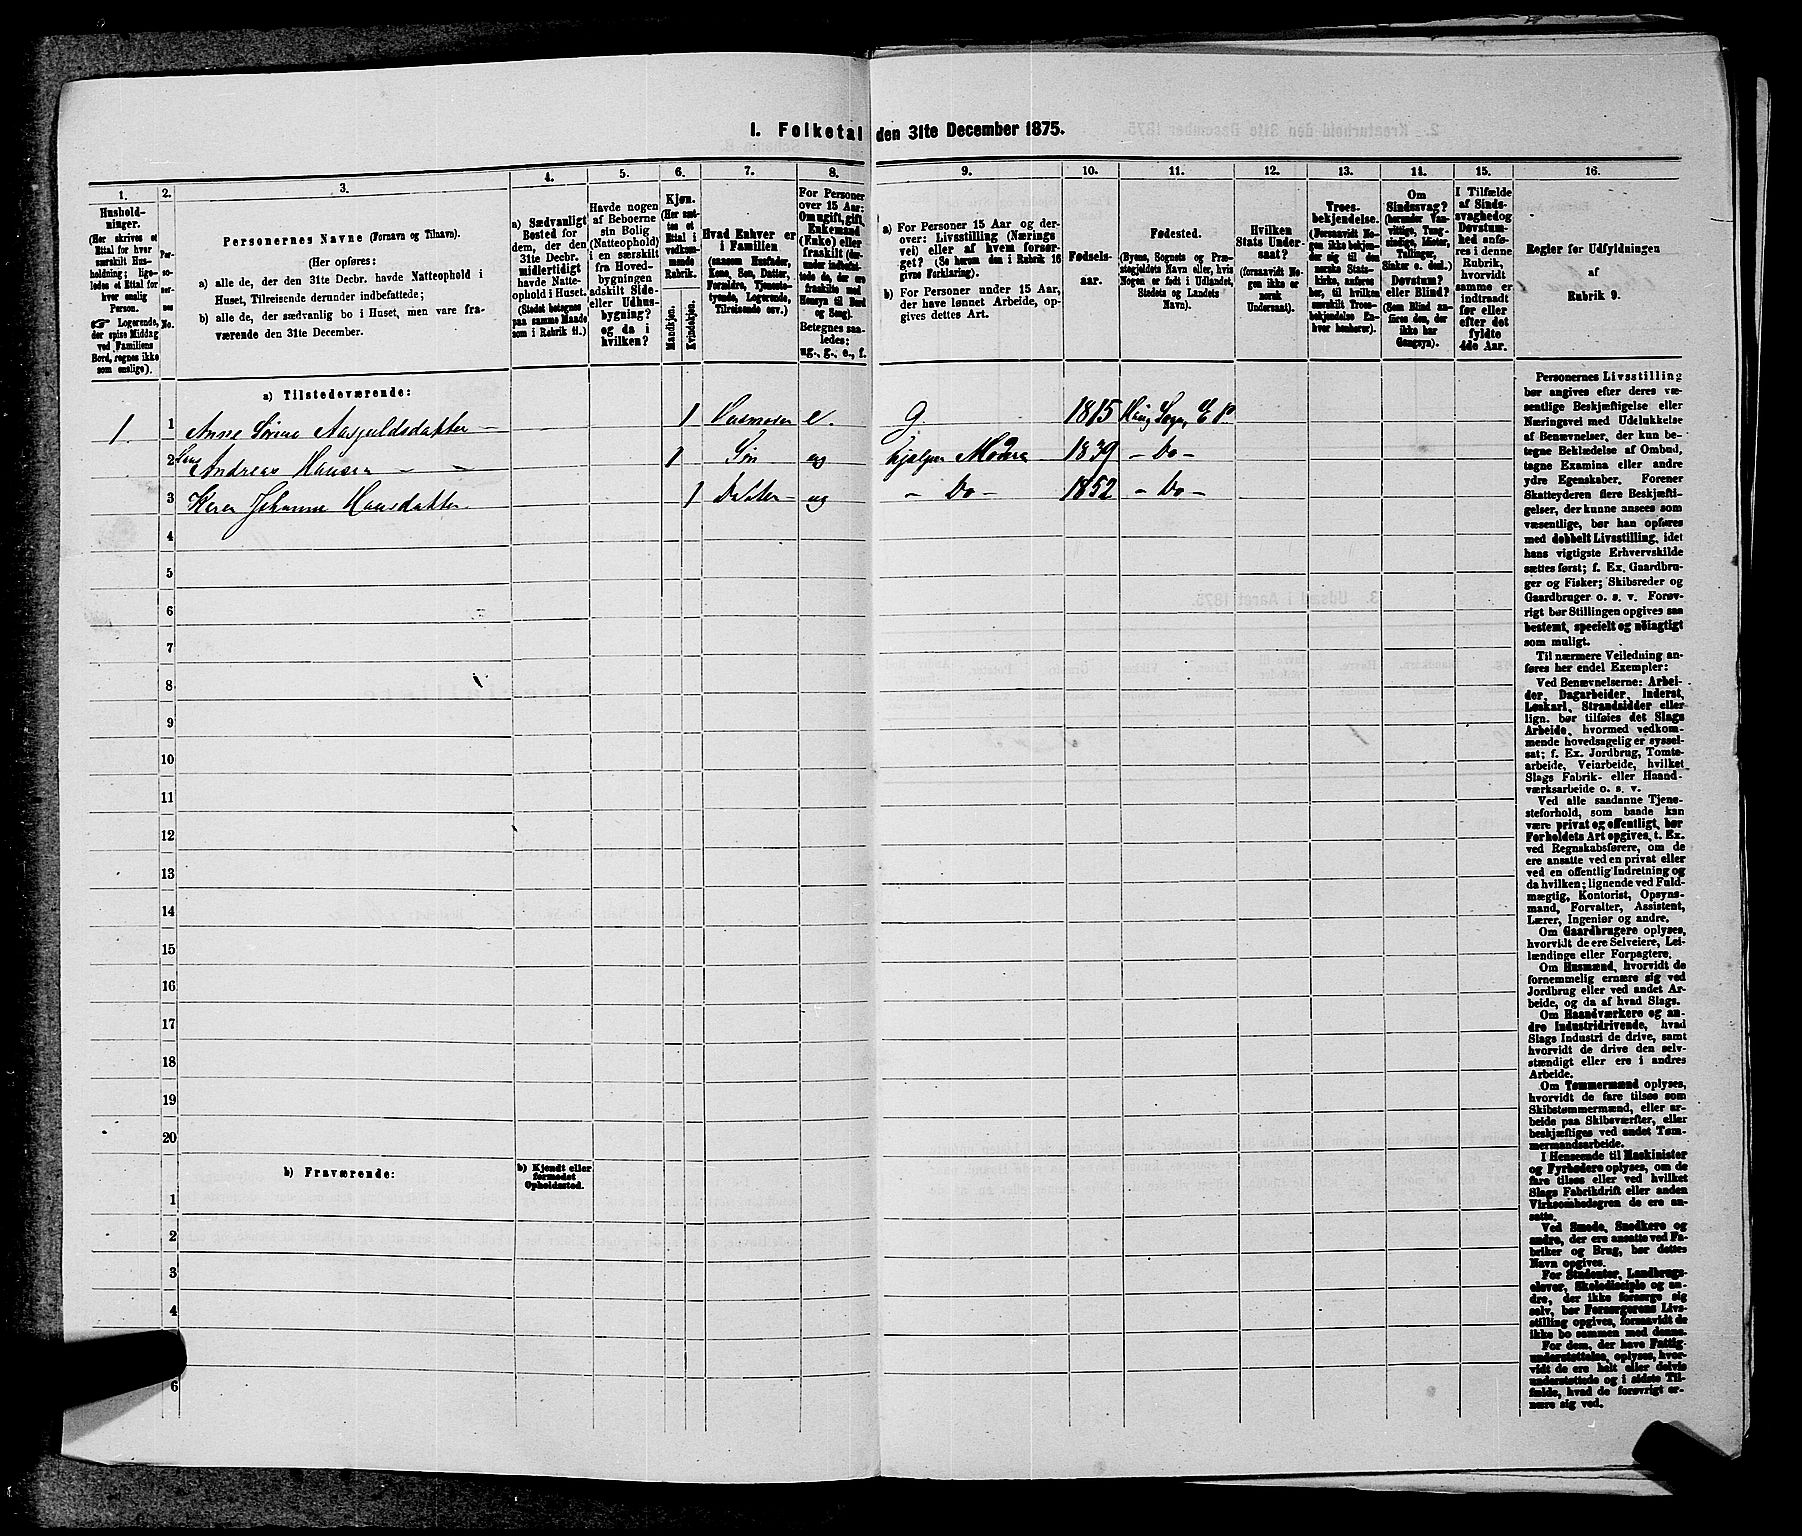 I. Folketal den 31te December 1875.
1. 2. 3. 4. 5. 6. 7. 8. 9. 10. 11. 12. 13. 14. 15. 16.
Hushold-
ninger.
(Her skrives et
Ettal for hver
særskilt Hus-
holdning; lige-
ledes et Ettal for
hver enslig
Person.
☞ Logerende,
der spise Middag
ved Familiens
Bord, regnes ikke
som enslige).
Per-
so-
ner-
nes
No.
Personernes Navne (Fornavn og Tilnavn).
(Her opføres:
a) alle de, der den 31te Decbr. havde Natteophold i
Huset, Tilreisende derunder indbefattede;
b) alle de, der sædvanlig bo i Huset, men vare fra-
værende den 31te December.
a) Sædvanligt
Bosted for
dem, der den
31te Decbr.
midlertidigt
havde Natte-
ophold i Huset.
(Stedet betegnes
paa samme Maade
som i Rubrik 11.)
Havde nogen
af Beboerne
sin Bolig
(Natteophold)
i en særskilt
fra Hoved-
bygningen
adskilt Side-
eller Udhus-
bygning?
og da i
hvilken?
Kjøn.
(Her sæt-
tes et
Ettal i
vedkom-
mende
Rubrik.
Mandkjøn.
Kvindekjøn.
Hvad Enhver er
i Familien
(saasom Husfader,
Kone, Søn, Datter,
Forældre, Tjeneste-
tyende, Logerende,
Tilreisende osv.)
For Personer
over 15 Aar:
Om ugift, gift,
Enkemand
(Enke) eller
fraskilt (der-
under indbefat-
tede de, der ere
fraskilte med
Hensyn til Bord
og Seng).
Betegnes saa-
ledes:
ug., g., e., f.
a) For Personer 15 Aar og der-
over: Livsstilling (Nærings
vei) eller af hvem forsør-
get? (Se herom den i Rubrik 16
givne Forklaring).
b) For Personer under 15 Aar,
der have lønnet Arbeide, op-
gives dettes Art.
Fødsels-
aar.
Fødested.
(Byens, Sognets og Præ-
stegjeldets Navn eller, hvis
Nogen er født i Udlandet,
Stedets og Landets
Navn).
Hvilken
Stats Under-
saat?
(forsaavidt No-
gen ikke er
norsk
Undersaat).
Troes-
bekjendelse.
(Forsaavidt No-
gen ikke bekjen-
der sig til den
norske Stats-
kirke, anføres
her, til hvilken
særskilt Troes-
bekjendelse En-
hver henhører).
Om
Sindssvag?
(herunder Van-
vittige, Tung-
sindige, Idioter,
Tullinger,
Sinker o. desl.)
Døvstum?
eller Blind?
(Som Blind an-
føres den, der
ikke har
Gangsyn).
I Tilfælde
af Sinds-
svaghed og
Døvstum-
hed anfø-
res i denne
Rubrik,
hvorvidt
samme er
indtraadt
før eller
efter det
fyldte
4de Aar.
Regler for Udfyldningen
af
Rubrik 9.
a) Tilstedeværende:
1 1 Anne Sørine Aasjuldsdatter 1 Husmoder e. g. 1815 Haug Sogn, E. P.
2 Andreas Hansen 1 Søn ug hjælper Modren 1839 Do
3 Karen Johanne Hansdatter 1 Datter ug Do 1852 Do
4
5
6
7
8
9
10
11
12
13
14
15
16
17
18
19
20
b) Fraværende:
b) Kjendt eller
formodet
Opholdssted.
1
2
3
4
6
Personernes Livsstilling
bør angives efter deres væ-
sentlige Beskjæftigelse eller
Næringsvei med Udelukkelse
af Benævnelser, der kun be-
tegne Beklædelse af Ombud,
tagne Examina eller andre
ydre Egenskaber. Forener
Skatteyderen flere Beskjæfti-
gelser, der kunne ansees som
væsentlige, bør han opføres
med dobbelt Livsstilling, idet
hans vigtigste Erhvervskilde
sættes først; f. Ex. Gaardbru-
ger og Fisker; Skibsreder og
Gaardbruger o. s. v. Forøv-
rigt bør Stillingen opgives saa
bestemt, specielt og nöiagtigt
som muligt.
Til nærmere Veiledning an-
føres her endel Exempler:
Ved Benævnelserne: Arbei-
der, Dagarbeider, Inderst,
Løskarl, Strandsidder eller
lign. bør tilføies det Slags
Arbeide, hvormed vedkom-
mende hovedsagelig er syssel-
sat; f. Ex. Jordbrug, Tomte-
arbeide, Veiarbeide, hvilket
Slags Fabrik- eller Haand-
værksarbeide o. s. v.
Ved alle saadanne Tjene-
steforhold, som baade kan
være privat og offentligt, bør
Forholdets Art opgives, t. Ex.
ved Regnskabsførere, om de
ere ansatte ved en privat eller
ved en offentlig Indretning og
da hvilken; lignende ved Fuld-
mægtig, Kontorist, Opsyns-
mand, Forvalter, Assistent,
Lærer, Ingeniør og andre.
Om Gaardbrugere oplyses,
hvorvidt de ere Selveiere, Lei-
lændinge eller Forpagtere.
Om Husmænd, hvorvidt de
fornemmelig ernære sig ved
Jordbrug eller ved andet Ar-
beide, og da af hvad Slags.
Om Haandværkere og an-
dre Industridrivende, hvad
Slags Industri de drive, samt
hvorvidt de drive den selv-
stændigt eller ere i andres
Arbeide.
Om Tømmermænd oplyses,
hvorvidt de fare tilsøs som
Skibstømmermænd, eller ar-
beide paa Skibsværfter, eller
beskjæftiges ved andet Tøm-
mermandsarbeide.
I Henseende til Maskinister
og Fyrbødere oplyses, om de
fare tilsøs eller ved hvilket
Slags Fabrikdrift eller anden
Virksomhedsgren de ere an-
satte.
Ved Smede, Snedkere og
andre, der ere ansatte ved Fa-
briker og Brug, bør dettes
Navn opgives.
For Studenter, Landbrugs-
elever, Skoledisciple og an-
dre, der ikke forsørge sig
selv, bør Forsørgerens Livs-
stilling opgives, forsaavidt de
ikke bo sammen med denne.
For dem, der have Fattig-
understøttelse, oplyses, hvor-
vidt de ere helt eller delvis
understøttede og i sidste Til-
fælde, hvad de forøvrigt er-
nære sig ved.